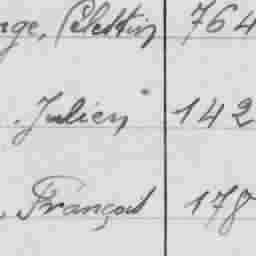 age, Célestin 764
. Julien 142
, François 178